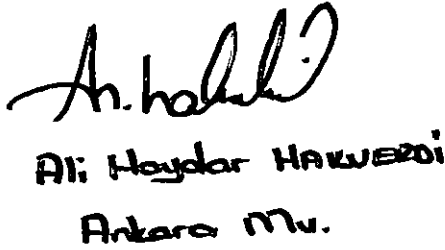 Ali Haydar HAKVERDİ
Ankara Mv.